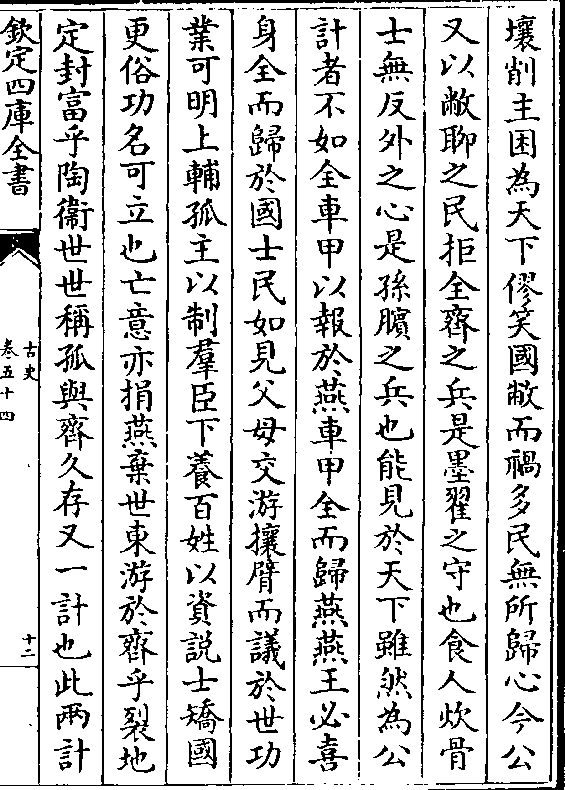 壤削主困為天下僇笑國敝而禍多民無所歸心今公
又以敝聊之民拒全齊之兵是墨翟之守也食人炊骨
士無反外之心是孫臏之兵也能見於天下雖然為公
計者不如全車甲以報於燕車甲全而歸燕燕王必喜
身全而歸於國士民如見父母交游攘臂而議於世功
業可明上輔孤主以制羣臣下養百姓以資説士矯國
更俗功名可立也亡意亦捐燕棄世東游於齊乎裂地
定封富乎陶衞世世稱孤與齊久存又一計也此兩計
欽定四庫全書
古史
卷五十四
十二